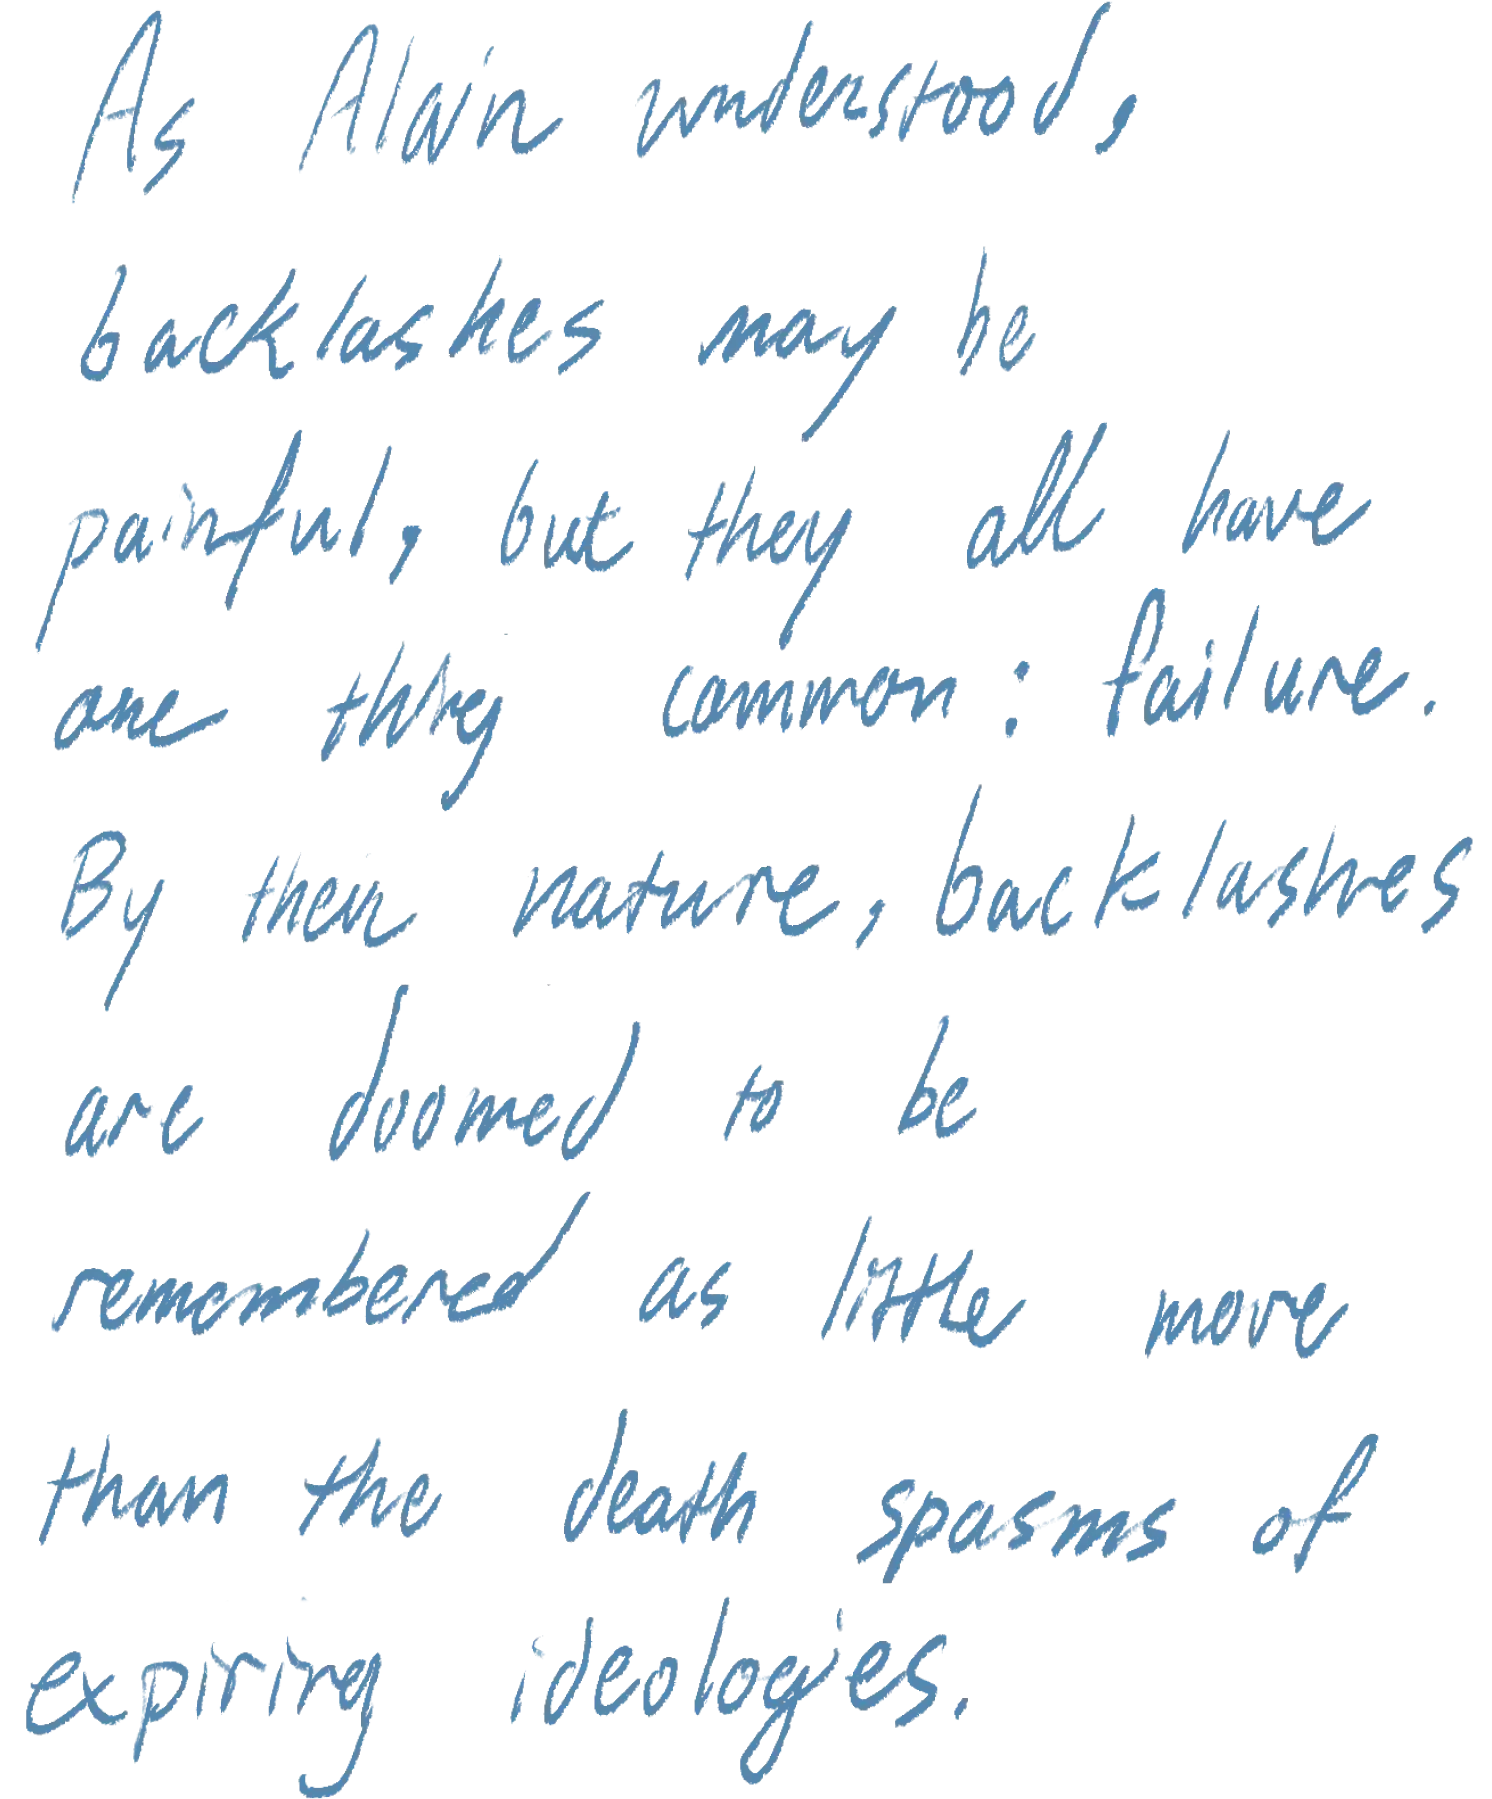 As Alain understood,
backlashes may be
painful, but they all have
one thing common: failure.
By their nature, backlashes
are doomed to be
remembered as little more
than the death spasms of
expiring ideologies.